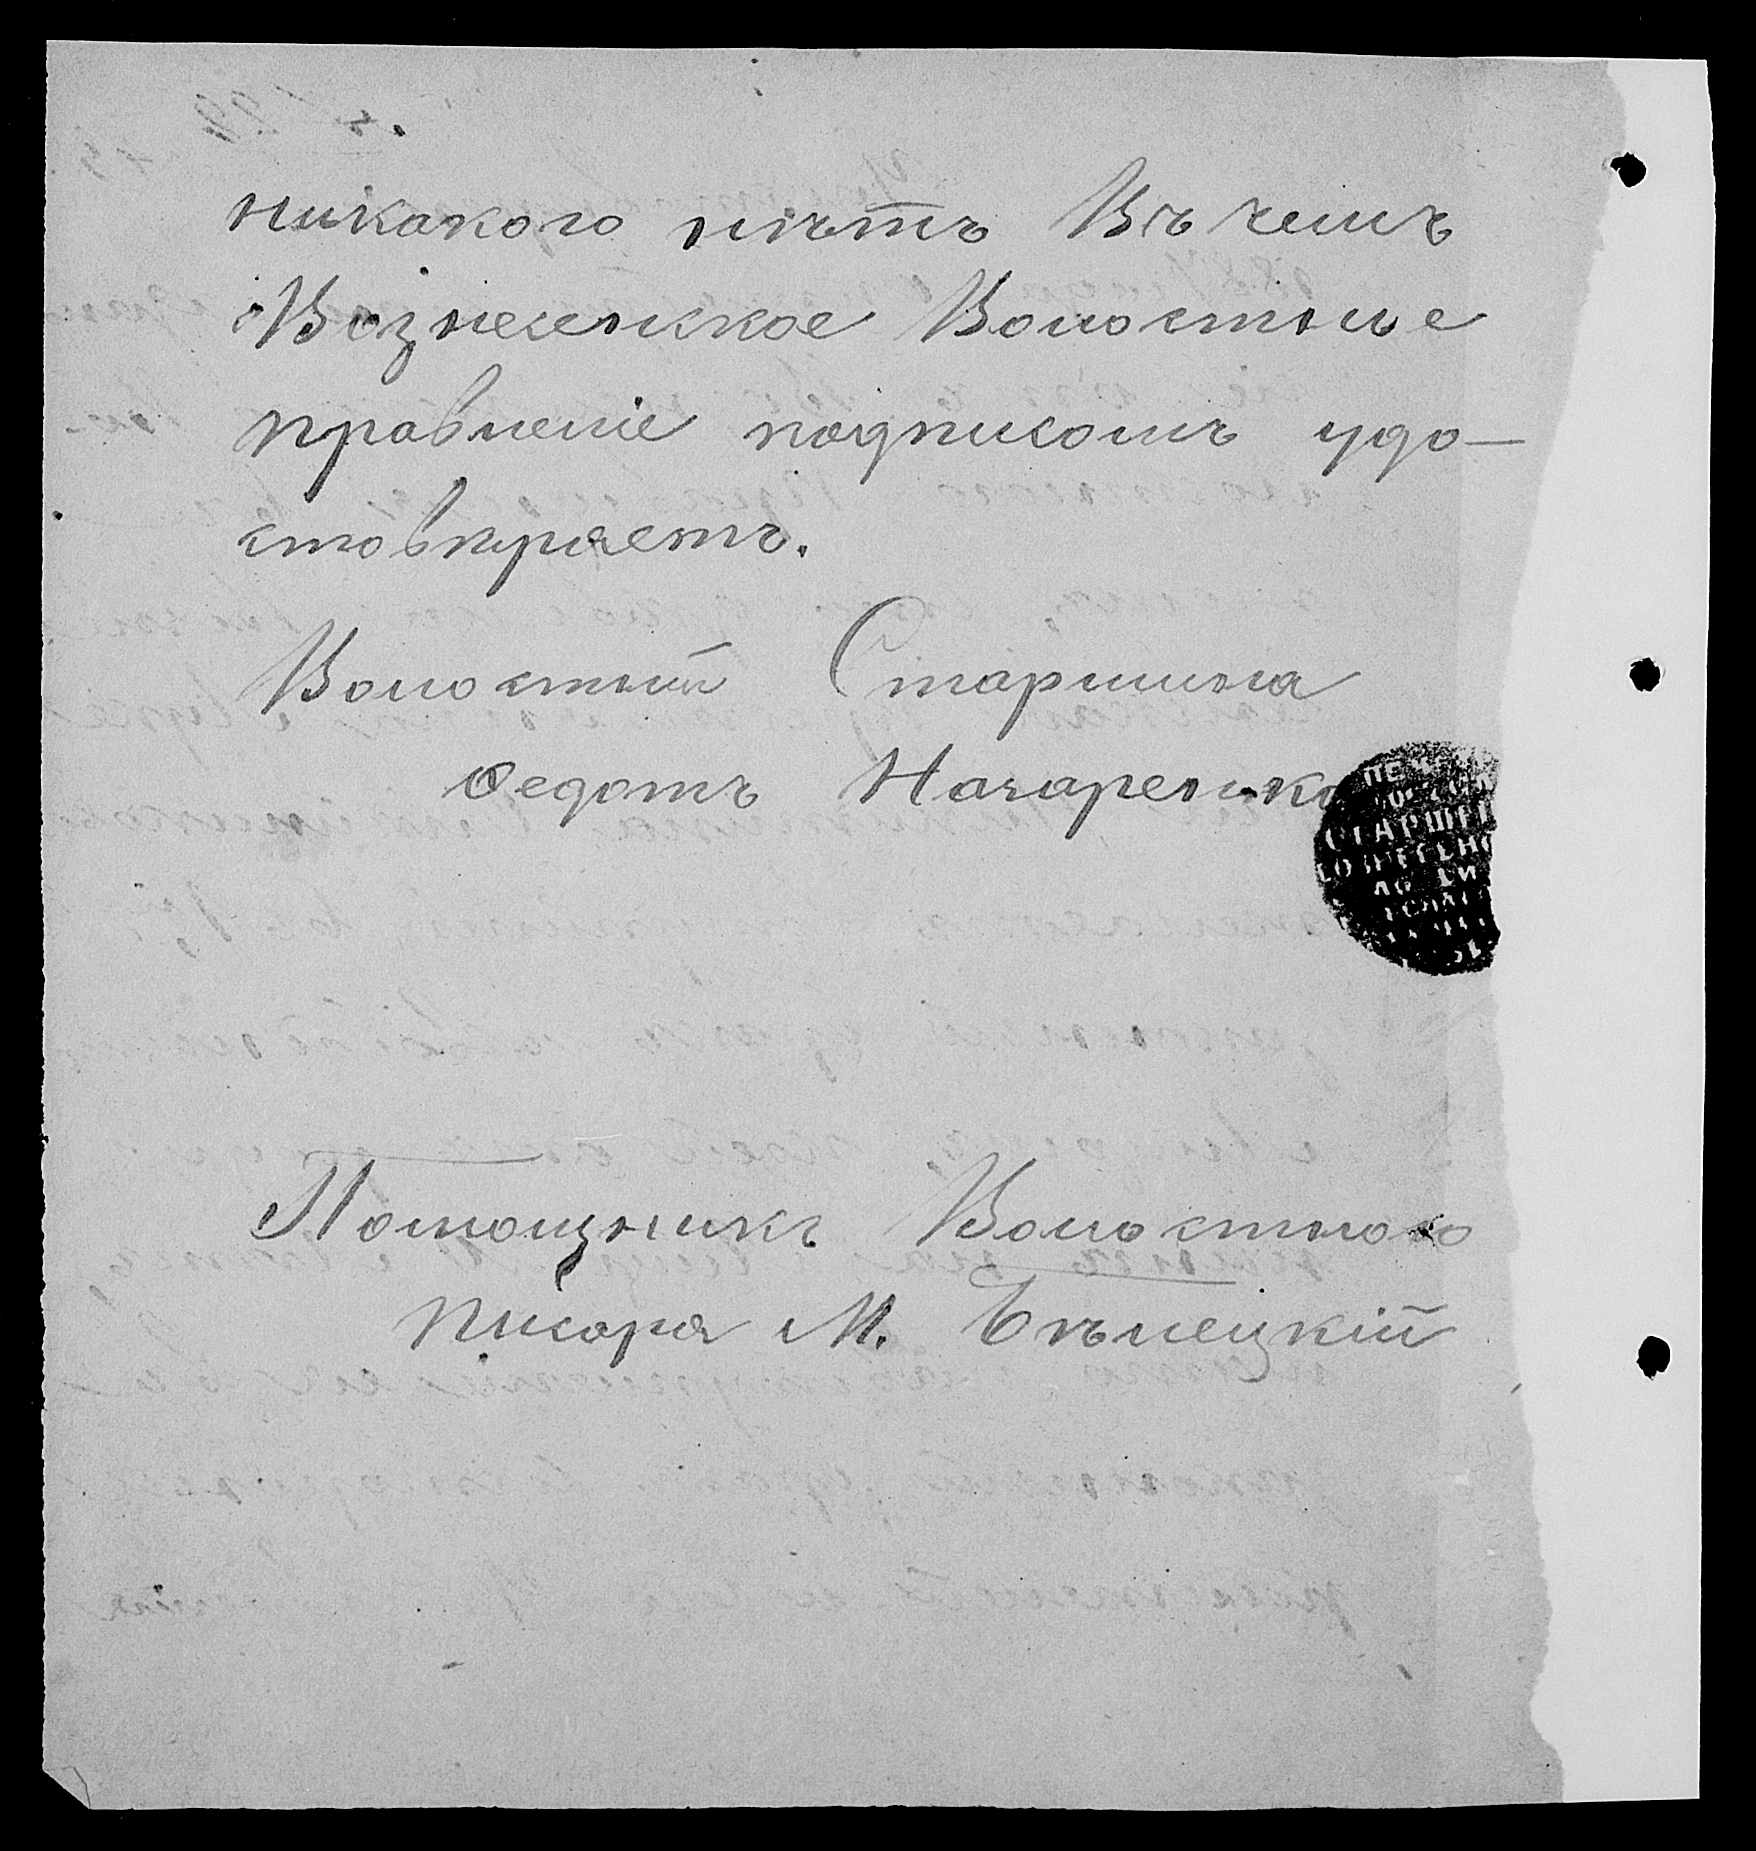 никакого нѣтъ Въ чемъ
Вознесенское Волостное
правленіе подписомъ удо—
стовѣряетъ.
Волостной Старшина
Ѳедотъ Назаренко
Помощникъ Волостного
писаря М. Бѣлецкій